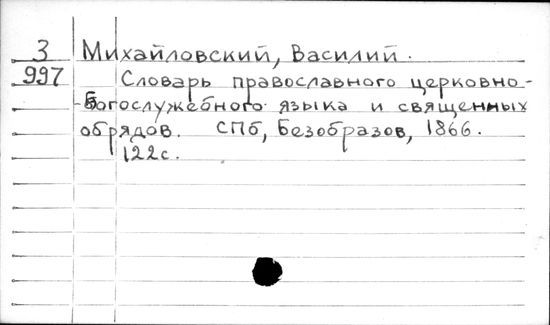 3 Михайловский, Василий.
997 Словарь православного церковно-
-богослужебного языка и священных
обрядов. СПб, Безобразов, 1866.
122с.